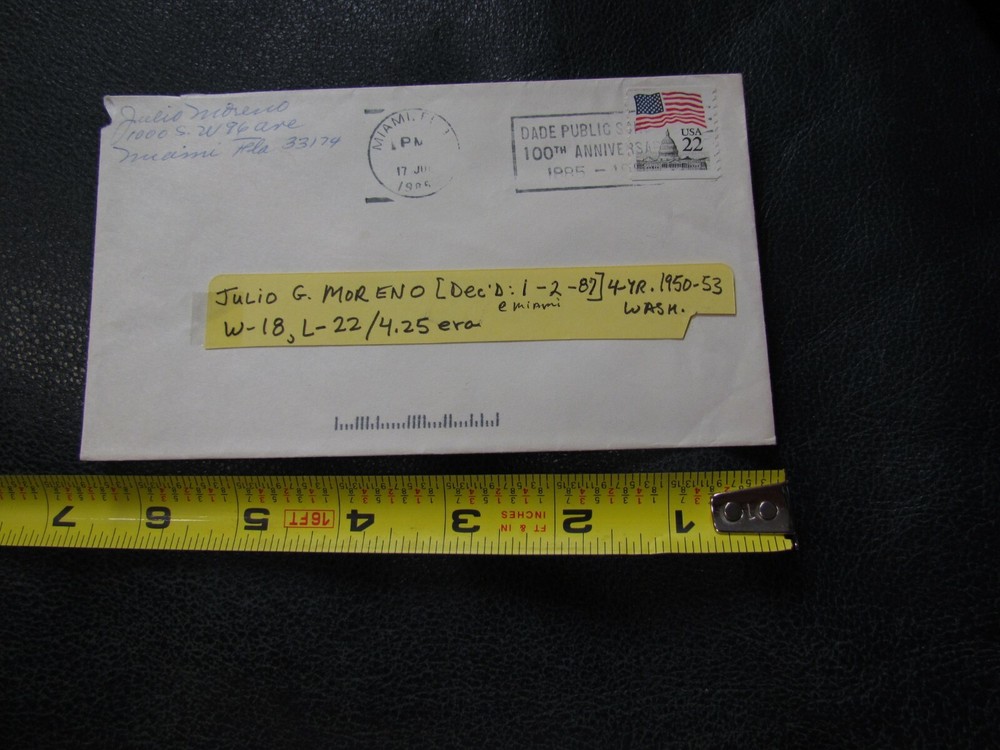 Julio Moreno
1000 S.W 96 ave
Miami Fla 33174
MIAMI, FL
PM
17 JU
1985
DADE PUBLIC S
100TH ANNIVERSA
1885 -
USA
22
JULIO G. MORENO [Dec'D: 1-2-87] 4-YR. 1950-53
@ MIAMI WASH.
W-18, L-22/4.25 era
7 6 5 16FT 4 3 FT & IN INCHES 2 1